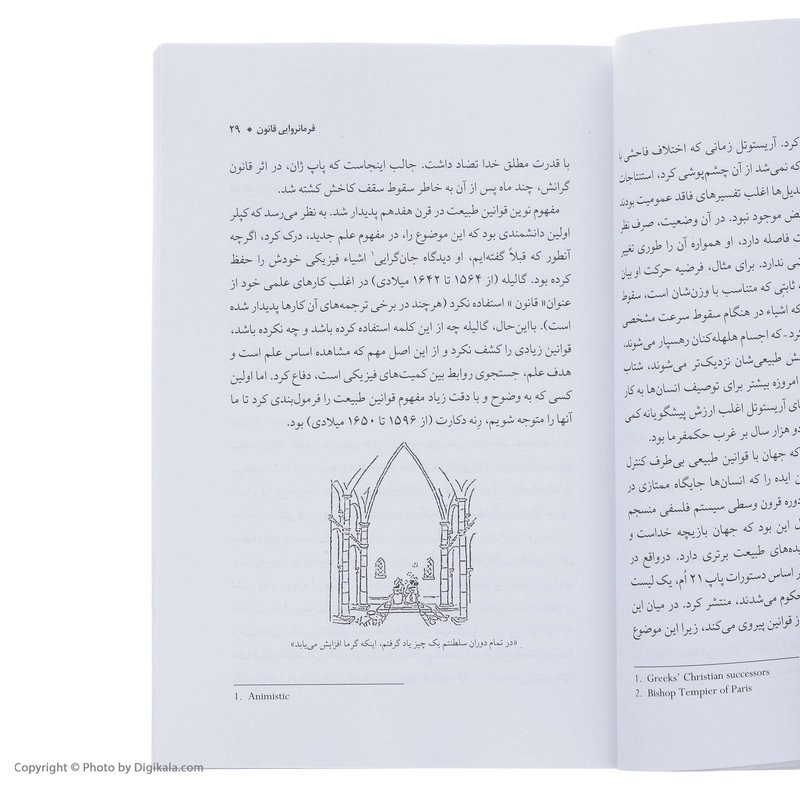 کرد. آریستوتل زمانی که اختلاف فاحشی با
که نمی‌شد از آن چشم‌پوشی کرد، استنتاجات
اغلب تفسیرهای فاقد عمومیت بودند
موجود نبود. در آن وضعیت، صرف نظر
فاصله دارد، او همواره آن را طوری تغییر
ندارد. برای مثال، فرضیه حرکت او بیان
ثابتی که متناسب با وزن‌شان است، سقوط
که اشیاء در هنگام سقوط سرعت مشخصی
که اجسام هلهله‌کنان رهسپار می‌شوند،
طبیعی‌شان نزدیک‌تر می‌شوند، شتاب
امروزه بیشتر برای توصیف انسان‌ها به کار
آریستوتل اغلب ارزش پیشگویانه کمی
دو هزار سال بر غرب حکمفرما بود.
که جهان با قوانین طبیعی بی‌طرف کنترل
ایده را که انسان‌ها جایگاه ممتازی در
دوره قرون وسطی سیستم فلسفی منسجم
این بود که جهان بازیچه خداست و
طبیعت برتری دارد. درواقع در
اساس دستورات پاپ ۲۱ اُم، یک لیست
می‌شدند، منتشر کرد. در میان این
از قوانین پیروی می‌کند، زیرا این موضوع
1. Greeks' Christian successors
2. Bishop Tempier of Paris
فرمانروایی قانون ◆ ۲۹
با قدرت مطلق خدا تضاد داشت. جالب اینجاست که پاپ ژان، در اثر قانون
گرانش، چند ماه پس از آن به خاطر سقوط سقف کاخش کشته شد.
مفهوم نوین قوانین طبیعت در قرن هفدهم پدیدار شد. به نظر می‌رسد که کپلر
اولین دانشمندی بود که این موضوع را، در مفهوم علم جدید، درک کرد، اگرچه
آنطور که قبلاً گفته‌ایم، او دیدگاه جان‌گرایی۱ اشیاء فیزیکی خودش را حفظ
کرده بود. گالیله (از ۱۵۶۴ تا ۱۶۴۲ میلادی) در اغلب کارهای علمی خود از
عنوان« قانون » استفاده نکرد (هرچند در برخی ترجمه‌های آن کارها پدیدار شده
است). بااین‌حال، گالیله چه از این کلمه استفاده کرده باشد و چه نکرده باشد،
قوانین زیادی را کشف نکرد و از این اصل مهم که مشاهده اساس علم است و
هدف علم، جستجوی روابط بین کمیت‌های فیزیکی است، دفاع کرد. اما اولین
کسی که به وضوح و با دقت زیاد مفهوم قوانین طبیعت را فرمول‌بندی کرد تا ما
آنها را متوجه شویم، رِنه دکارت (از ۱۵۹۶ تا ۱۶۵۰ میلادی) بود.
«در تمام دوران سلطنتم یک چیز یاد گرفتم، اینکه گرما افزایش می‌یابد»
1. Animistic
Copyright © Photo by Digikala.com